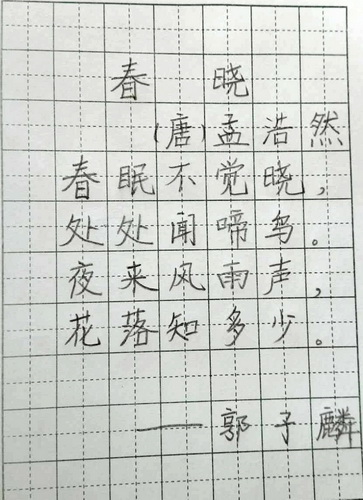 春晓
(唐)孟浩然
春眠不觉晓,
处处闻啼鸟。
夜来风雨声,
花落知多少。
——郭子麟